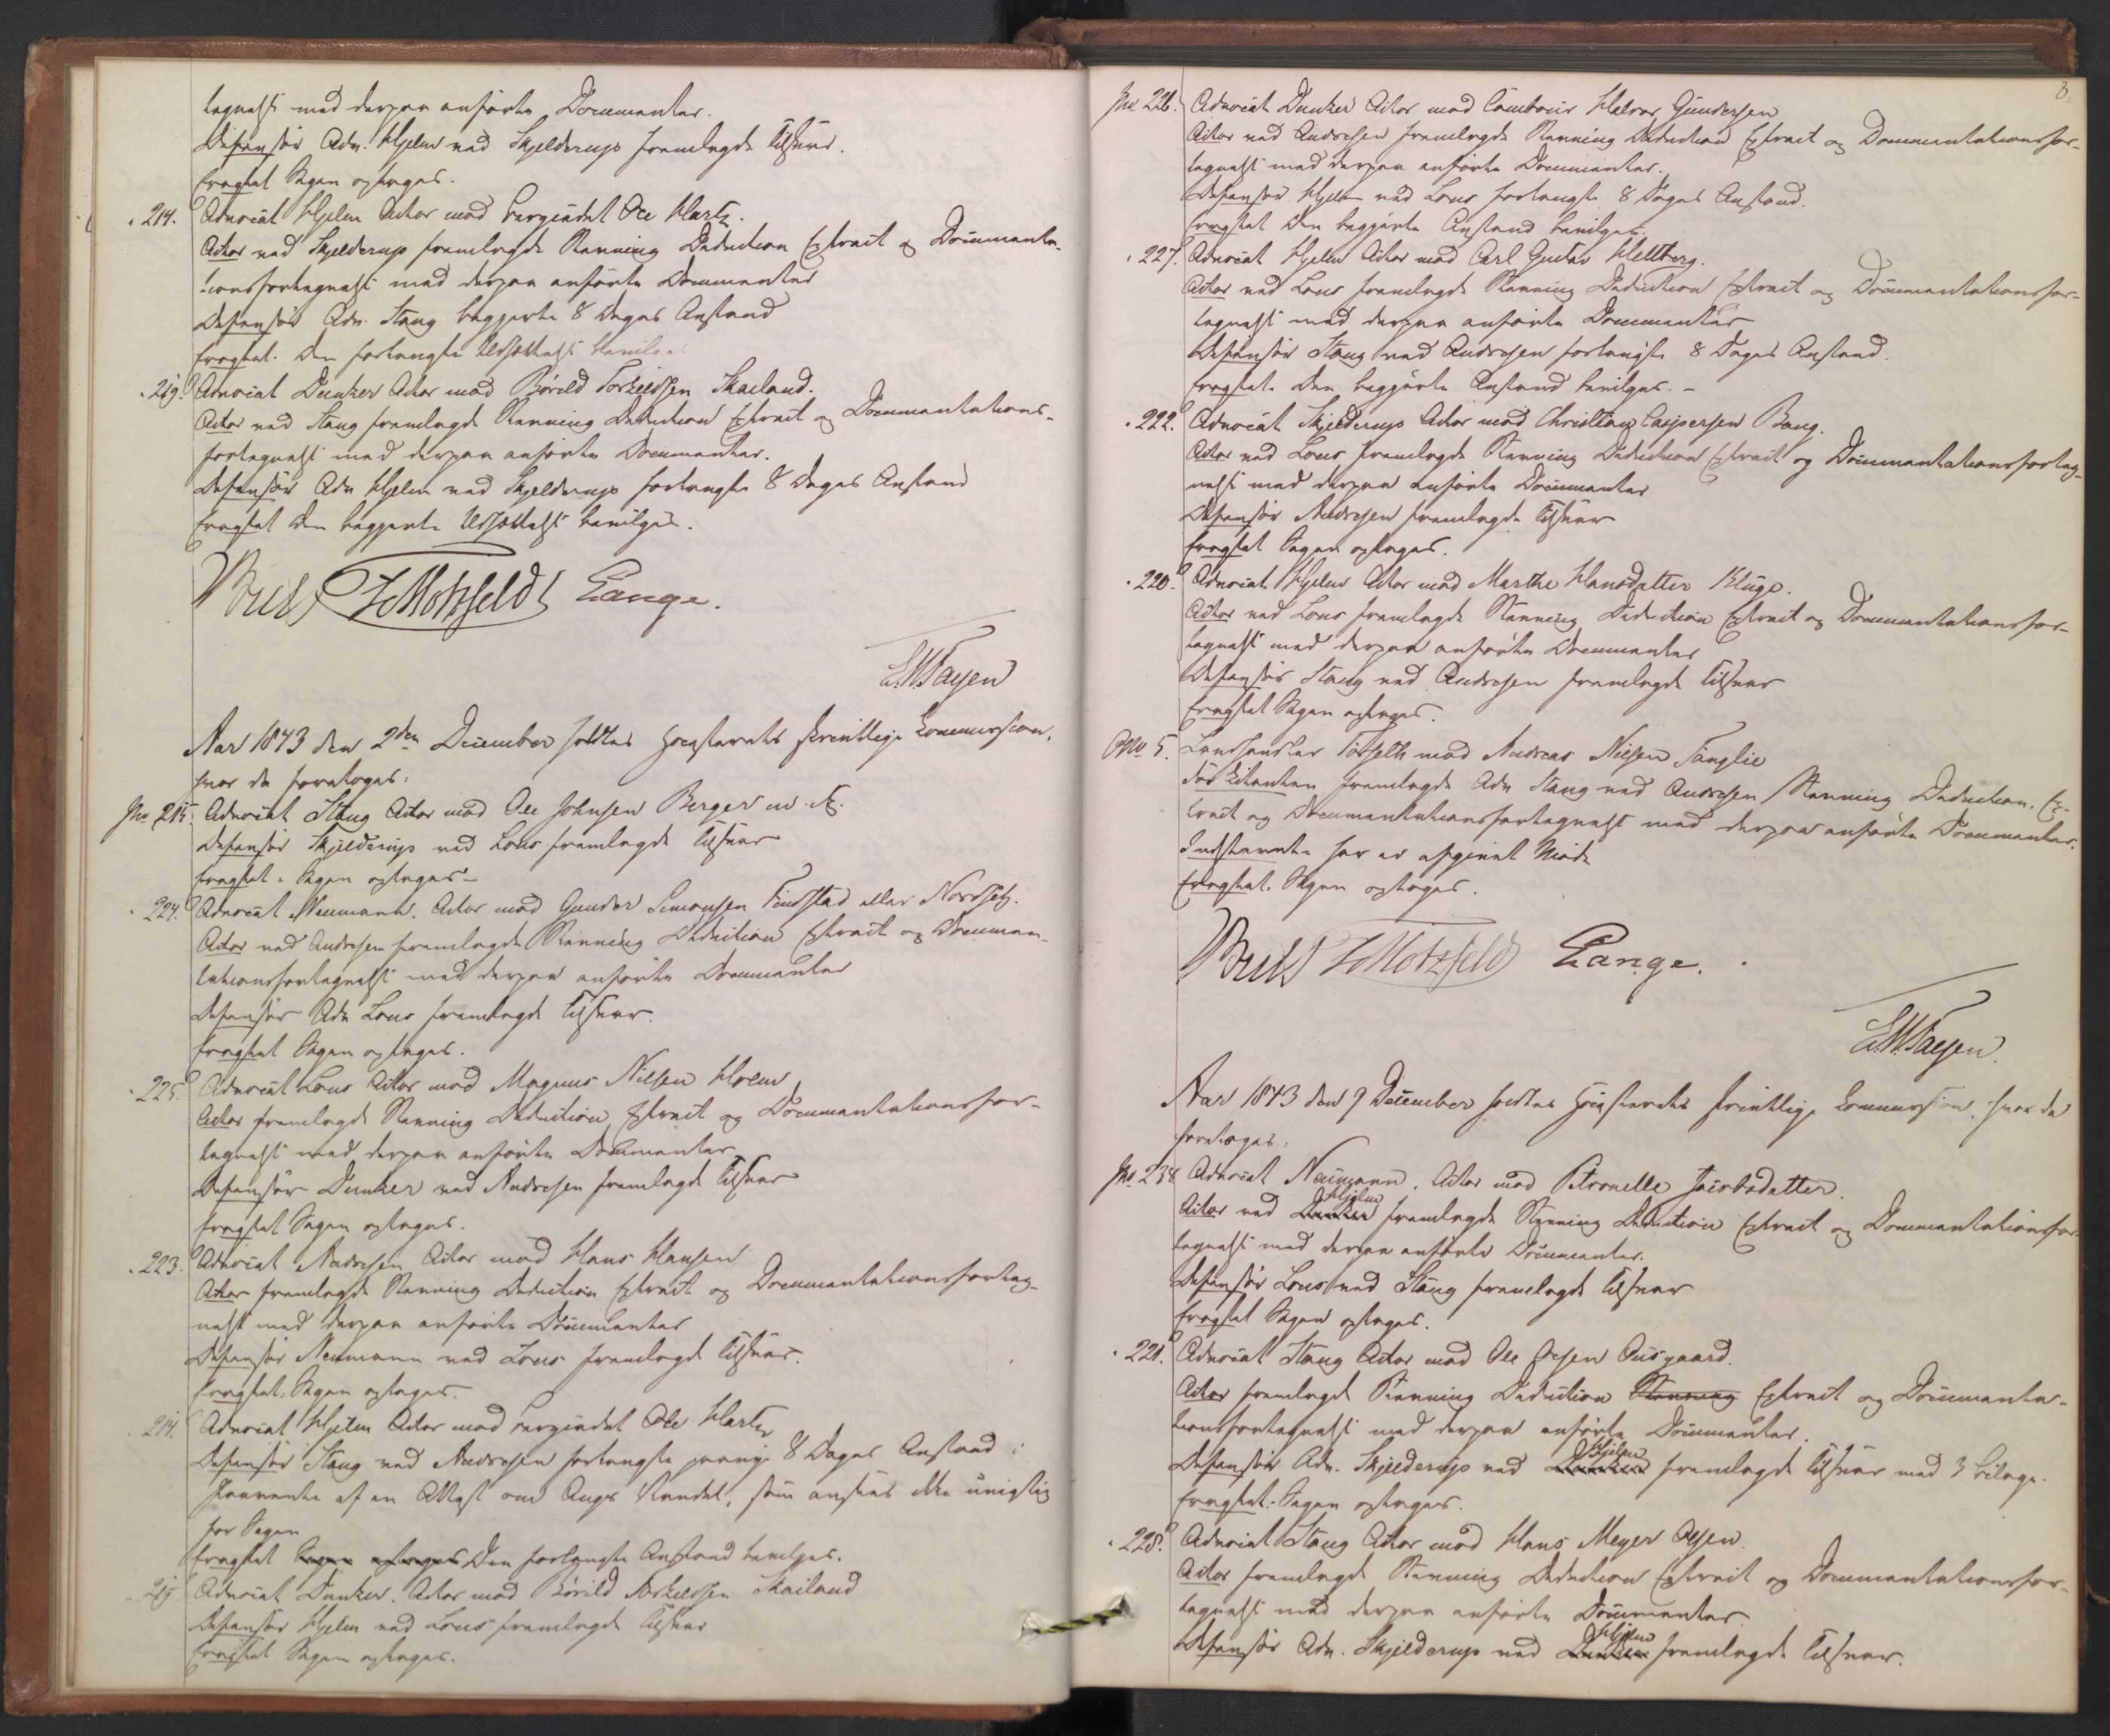 tegnelse med derpaa anførte Documenter.
Defensor Adv. Hjelm ved Skjelderup fremlagde Tilsvar.
Eragtet Sagen optages.
" 214. Advocat Hjelm Actor mod Bergcadet Ole Hartz.
Actor ved Skjelderup fremlagde Stevning Deduction Extract og Documenta-
tionsfortegnelse med derpaa anførte Documenter
Defensor Adv. Stang begjerte 8 Dages Anstand
Eragtet. Den forlangte Udsættelse bevilges
" 219. Advocat Dunker Actor mod Bórild Torkildsen Skailand.
Actor ved Stang fremlagde Stevning Deduction Extract og Documentations-
fortegnelse med derpaa anførte Documenter.
Defensor Adv Hjelm ved Skjelderup forlangte 8 Dages Anstand
Eragtet Den begjerte Udsættelse bevilges.
Bull Motzfeldt Lange.
Aar 1843 den 2den December holdtes Høiesterets skriftlige Commission,
hvor da foretoges:
No 215. Advocat Stang Actor mod Ole Johnsen Berger m. fl.
Defensor Skjelderup ved Lous fremlagde Tilsvar
Eragtet. Sagen optages
" 224. Advocat Neumann. Actor mod Gunder Simonsen Findstad eller Nordseth.
Actor ved Andresen fremlagde Stevning Deduction Extract og Documen-
tationsfortegnelse med derpaa anførte Documenter
Defensor Adv Lous fremlagde Tilsvar.
Eragtet Sagen optages.
" 225. Advocat Lous Actor mod Magnus Nielsen Holm
Actor fremlagde Stevning Deduction, Extract og Documentationsfor-
tegnelse med derpaa anførte Documenter
Defensor Dunker ved Andresen fremlagde Tilsvar
Eragtet Sagen optages.
" 223. Advocat Andresen Actor mod Hans Hansen
Actor fremlagde Stevning Deduction Extract og Documentationsforteg-
nelse med derpaa anførte Documenter
Defensor Neumann ved Lous fremlagde Tilsvar.
Eragtet. Sagen optages.
" 214. Advocat Hjelm Actor mod Bergcadet Ole Hartz
Defensor Stang ved Andresen forlangte paany 8 Dages Anstand i
Paavente af en Attest om Angs Vandel, som ansees ikke uvigtig
for Sagen
Eragtet Sagen optages Den forlangte Anstand bevilges.
" 219 Advocat Dunker. Actor mod Börild Torkildsen Skailand
Defensor Hjelm ved Lous fremlagde Tilsvar
Eragtet Sagen optages.
8.
No 226. Advocat Dunker Actor mod Tambour Halvor Gundersen
Actor ved Andresen fremlagde Stevning Deduction Extract og Documentationsfor-
tegnelse med derpaa anførte Documenter.
Defensor Hjelm ved Lous forlangte 8 Dages Anstand.
Eragtet Den begjærte Anstand bevilges.
" 227. Advocat Hjelm Actor mod Carl Gustav Hellberg.
Actor ved Lous fremlagde Stevning Deduction Extract og Documentationsfor-
tegnelse med derpaa anførte Documenter
Defensor Stang ved Andresen forlangte 8 Dages Anstand.
Eragtet. Den begjærte Anstand bevilges. -
" 222. Advocat Skjelderup Actor mod Christian Caspersen Bang.
Actor ved Lous fremlagde Stevning Deduction Extract og Documentationsforteg-
nelse med derpaa anførte Documenter
Defensor Andresen fremlagde Tilsvar
Eragtet Sagen optages.
" 220. Advocat Hjelm Actor mod Marthe Hansdatter Kluge.
Actor ved Lous fremlagde Stevning Deduction Extract og Documentationsfor-
tegnelse med derpaa anførte Documenter
Defensor Stang ved Andresen fremlagde Tilsvar
Eragtet Sagen optages.
No 5. Landhandler Torseth mod Andreas Nielsen Tanglie
For Citanten fremlagde Adv Stang ved Andresen Stevning Deduction. Ex-
tract og Documentationsfortegnelse med derpaa anførte Documenter.
Indstevnte har ei afgivet Møde
Eragtet. Sagen optages.
Bull Motzfeldt Lange.
Aar 1843 den 9 December holdtes Høiesterets skriftlige Commission, hvor da
foretoges:
Advocat Neumann. Actor mod Petronelle Jacobsdatter.
Hjelm
Actor ved Dunker fremlagde Stevning Deduction Extract og Documentationsfor-
tegnelse med derpaa anførte Documenter.
Defensor Lous ved Stang fremlagde Tilsvar
Eragtet Sagen optages.
" 221. Advocat Stang Actor mod Ole Olsen Ousgaard.
Actor fremlagde Stevning Deduction Stevning Extract og Documenta-
tionsfortegnelse med derpaa anførte Documenter.
Hjelm
Defensor Adv. Skjelderup ved Dunker fremlagde Tilsvar med 3 Bilage.
Eragtet. Sagen optages.
" 228. Advocat Stang Actor mod Hans Meyer Olsen.
Actor fremlagde Stevning Deduction Extract og Documentationsfor-
tegnelse med derpaa anførte Documenter
Hjelm
Defensor Adv. Skjelderup ved Dunker fremlagde Tilsvar.